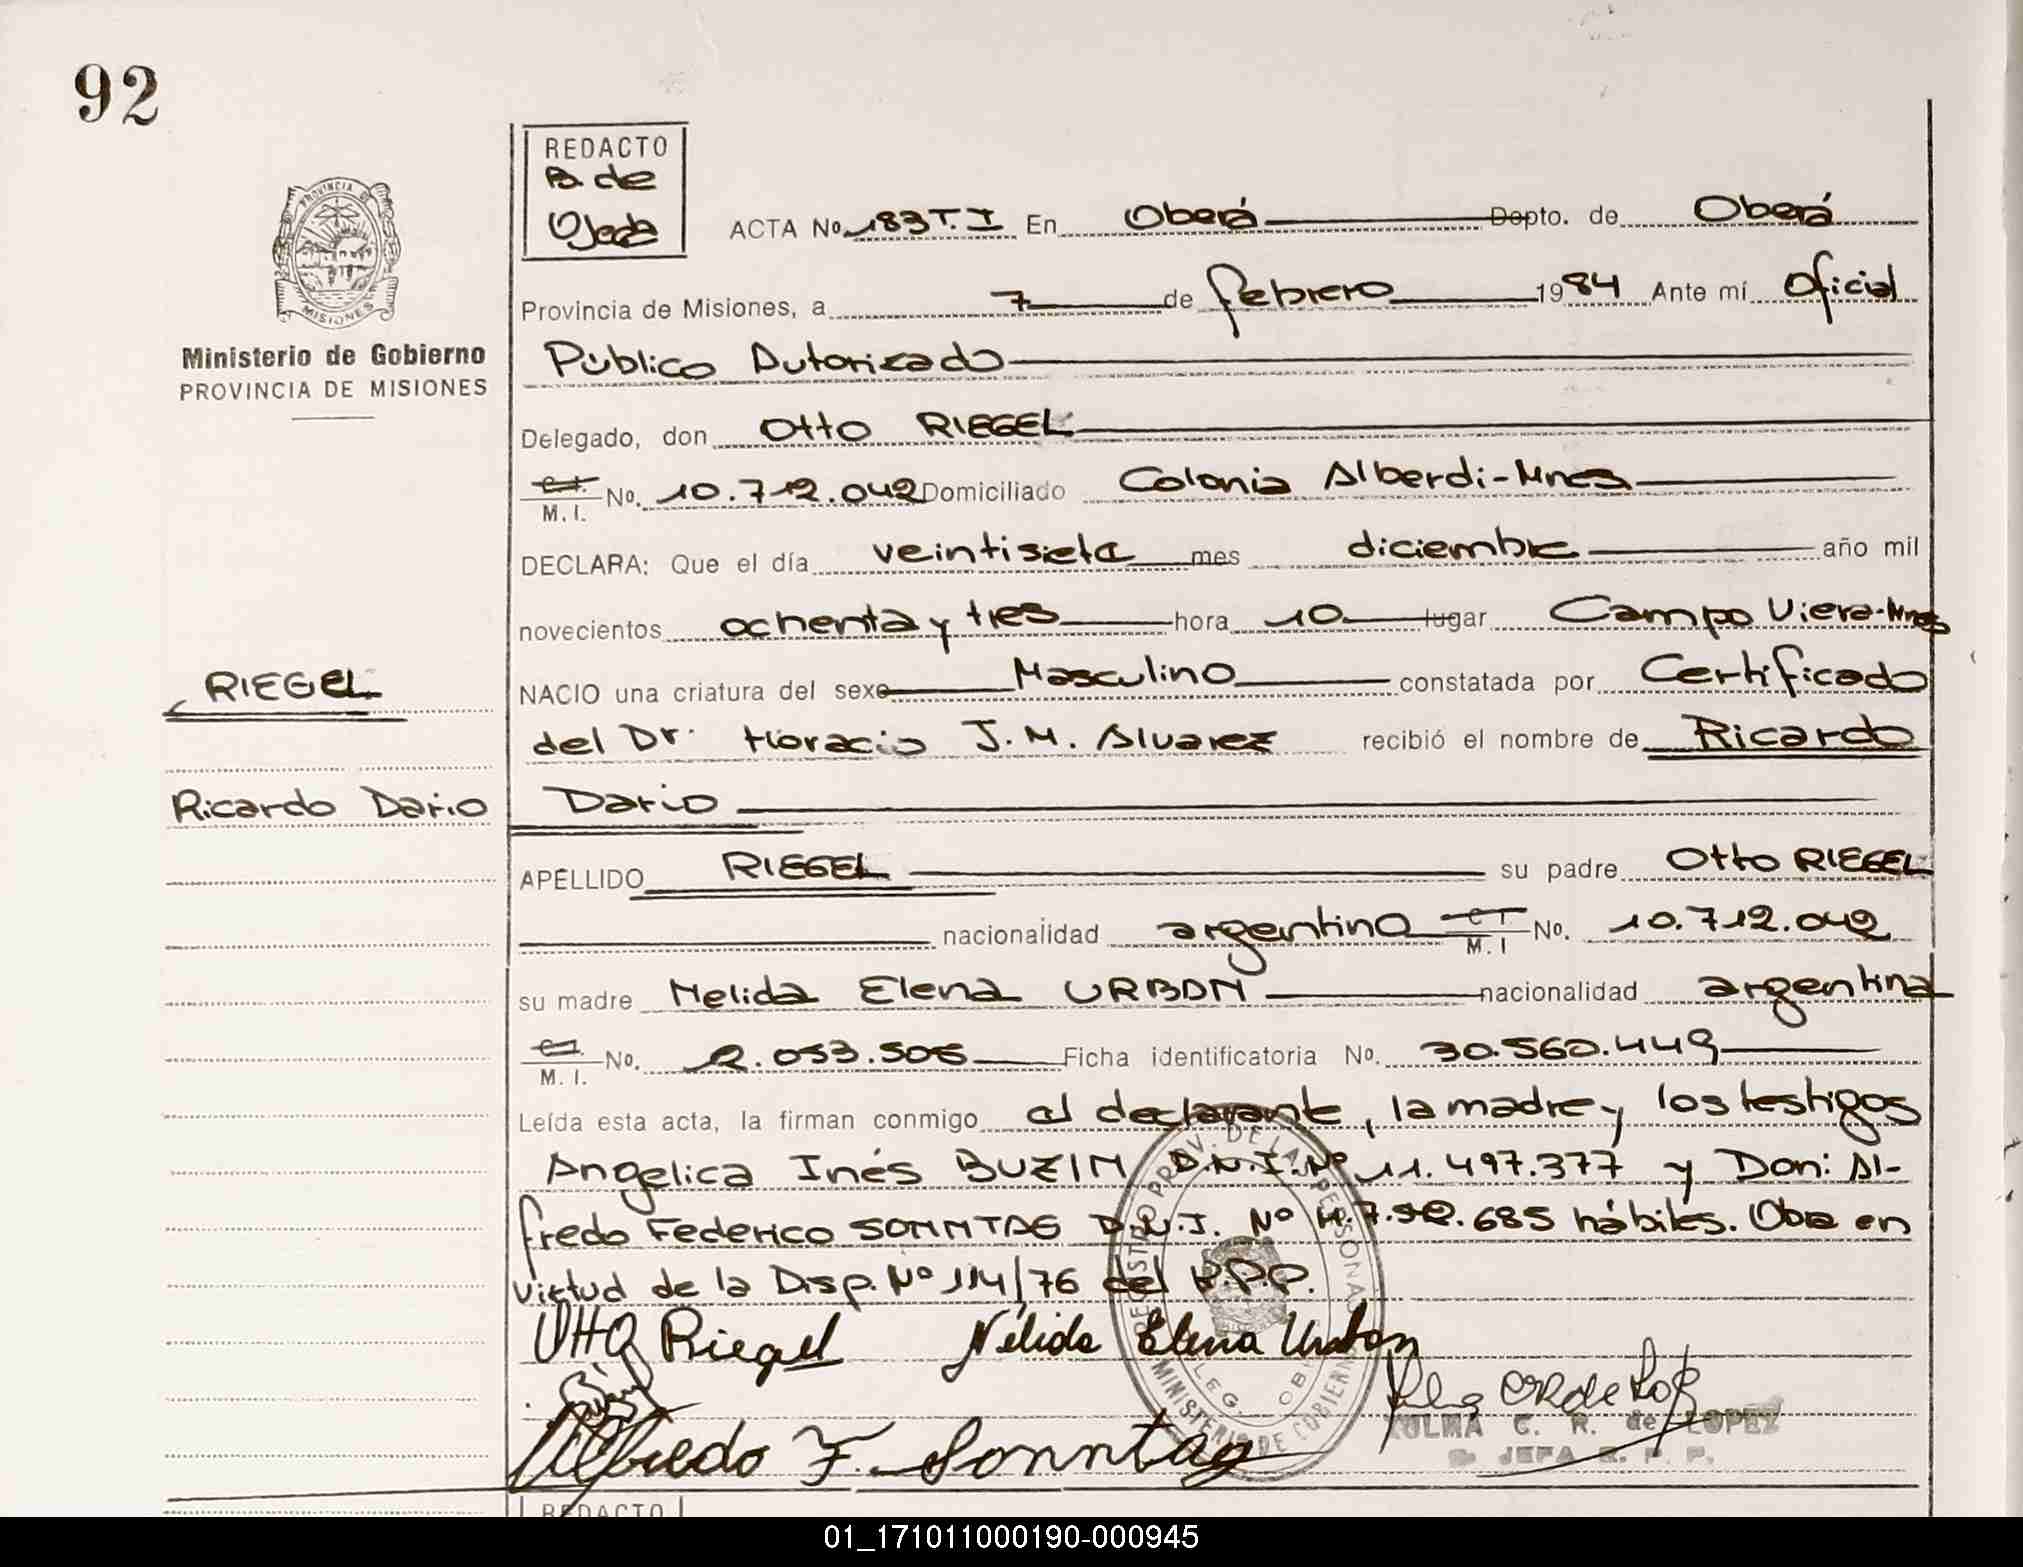 92
REDACTO
B. de
Ojeda
ACTA No. 183 T. I En Oberá Depto. de Oberá
Provincia de Misiones, a 7 de febrero 1984 Ante mí Oficial
Público Autorizado
Delegado, don Otto RIEGEL
C.I. M. I. No. 10.712.042 Domiciliado Colonia Alberdi-Mnes
DECLARA: Que el día veintisiete mes diciembre año mil
novecientos ochenta y tres hora 10 lugar Campo Viera-Mnes
NACIO una criatura del sexo Masculino constatada por Certificado
del Dr. Horacio J. M. Alvarez recibió el nombre de Ricardo
Dario
APELLIDO RIEGEL su padre Otto RIEGEL
nacionalidad argentino C I M. I No. 10.712.042
su madre Nelida Elena URBAN nacionalidad argentina
C.I. M. I. No. 2.053.505 Ficha identificatoria No. 30.560.449
Leída esta acta, la firman conmigo el declarante, la madre y los testigos
Angelica Inés BUZIM D.N.I. Nº 11.497.377 y Don: Al-
fredo Federico SONNTAG D.N.I. Nº 685 hábiles. Obra en
virtud de la Disp. Nº 114/76 del R.P.P.
Otto Riegel Nélida Elena Urban
Alfredo F. Sonntag
ZULMA C. R. de LOPEZ
JEFA R. P. P.
PROVINCIA DE
MISIONES
Ministerio de Gobierno
PROVINCIA DE MISIONES
RIEGEL
Ricardo Dario
REGISTRO PROV. DE LAS PERSONAS
MINISTERIO DE GOBIERNO
REDACTO
01_171011000190-000945